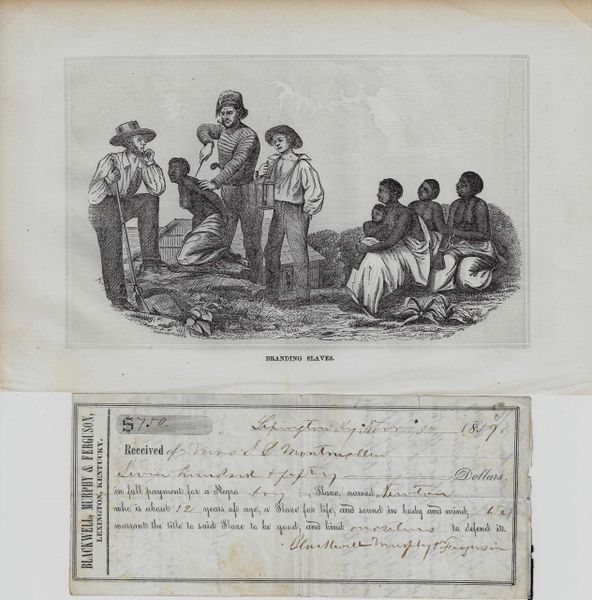 BRANDING SLAVES.
BLACKWELL, MURPHY & FERGUSON,
LEXINGTON, KENTUCKY.
$750. Lexington Ky Nov 30 1849
Received of Mrs
Seven hundred & fifty Dollars,
in full payment for a Negro boy Slave, named Newton
who is about 12 years of age, a Slave for life, and sound in body and mind;
warrant the title to said Slave to be good, and bind ourselves to defend it.
Blackwell Murphy & Ferguson